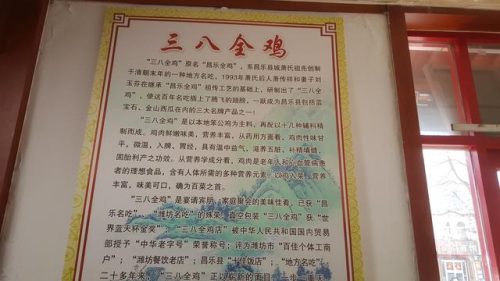 三八全鸡
"三八全鸡"原名"昌乐全鸡",系昌乐县城萧氏祖先创制
于清朝末年的一种地方名吃,1993年萧氏后人萧传祥和妻子刘
玉芬在继承"昌乐全鸡"祖传工艺的基础上,研制出了"三八全
鸡",使这百年名吃插上了腾飞的翅膀,一跃成为昌乐县包括蓝
宝石、金山西瓜在内的三大名牌产品之一!
"三八全鸡"是以本地笨公鸡为主料,再配以十几种辅料精
制而成。鸡肉鲜嫩味美,营养丰富,从药用方面看,鸡肉性味甘
平,微温,入脾、胃经,具有温中益气,滋养五脏,补精填髓,
固胎利产之功效。从营养学成分看,鸡肉是老年人和心血管病患
者的理想食品,含有人体所需的多种营养元素,以鸡入菜,营养
丰富,味美可口,确为百菜之首。
"三八全鸡"是宴请宾朋、家庭聚会的美味佳肴,已获"昌
乐名吃"、"潍坊名吃"的殊荣,真空包装"三八全鸡"获"世
界蓝天杯金奖";"三八全鸡店"被中华人民共和国国内贸易
部授予"中华老字号"荣誉称号;评为潍坊市"百佳个体工商
户";"潍坊餐饮老店";昌乐县"十佳饭店";"地方名吃";
二十多年来,"三八全鸡"正以崭新的面目,一步一